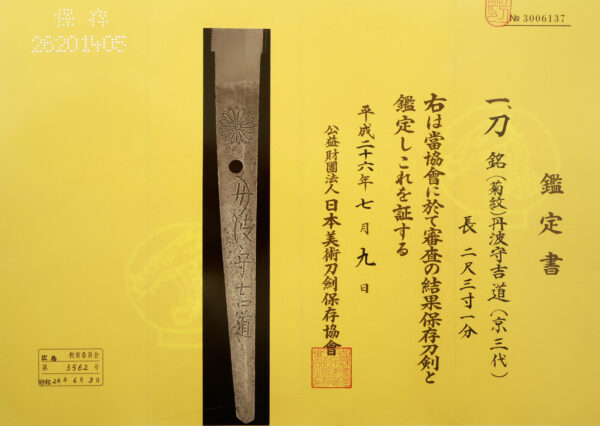 鑑定書
一、刀 銘(菊紋)丹波守吉道(京三代)
長 二尺三寸一分
右は當協會に於て審査の結果保存刀劍と
鑑定しこれを証する
平成二十六年七月九日
公益財團法人日本美術刀劍保存協會
№ 3006137
保存
26201405
丹波守吉道
広島 教育委員会
第 3562 号
昭和 26年 6月 3日